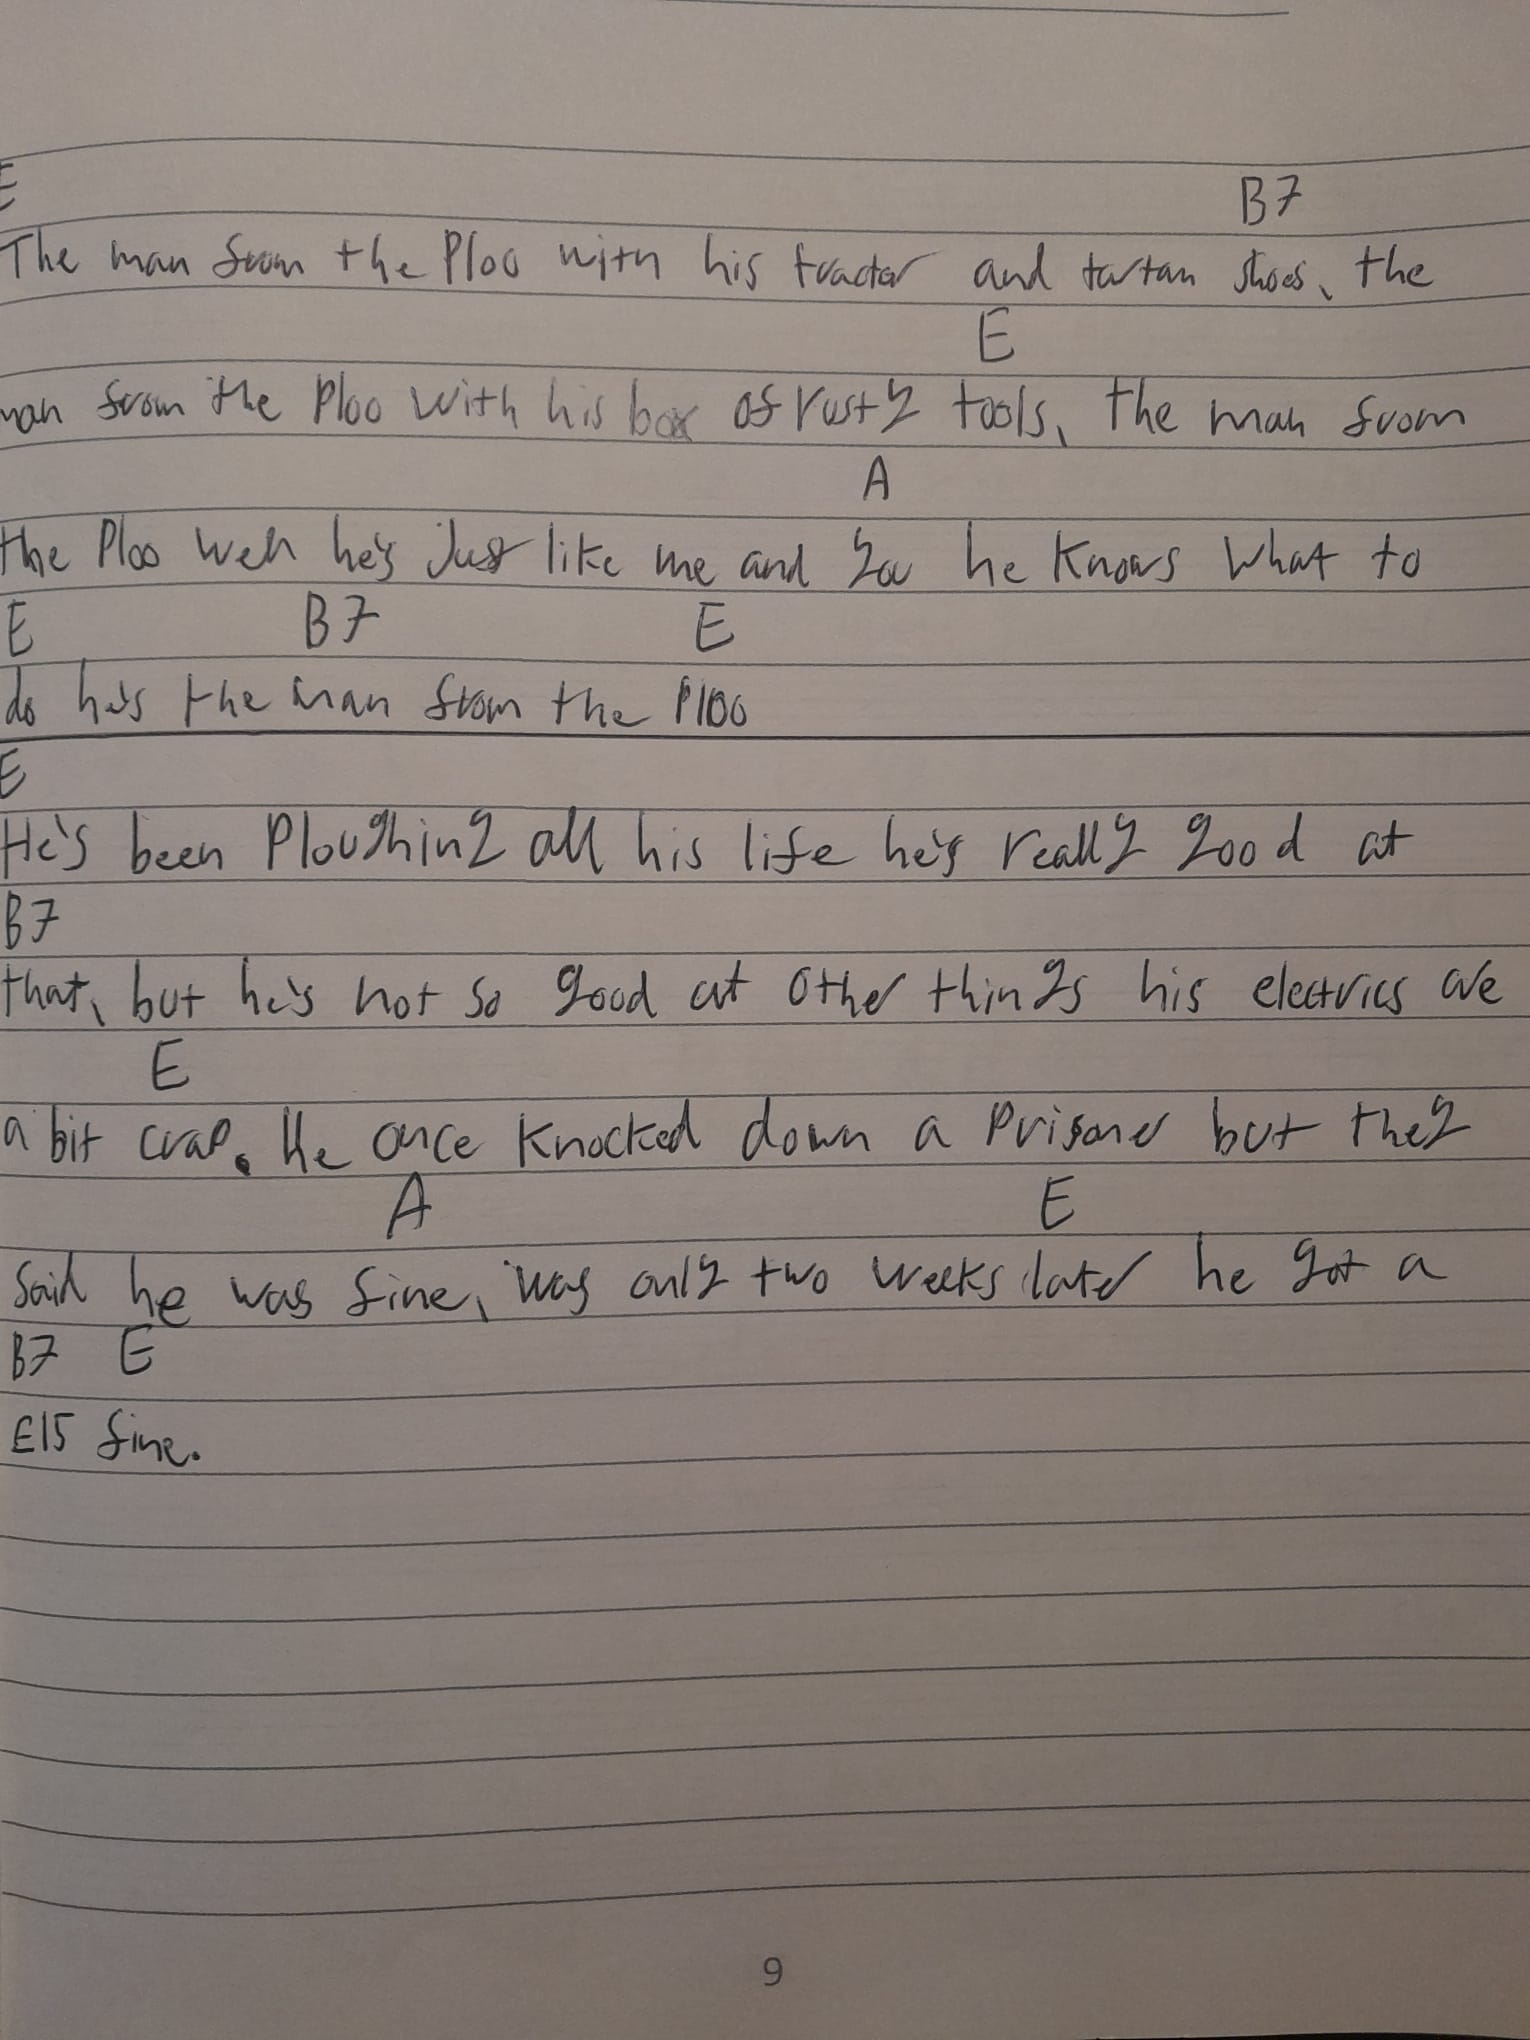 E
B7
The man from the Ploo with his tractor and tartan shoes, the
E
man from the Ploo with his box of rusty tools, the man from
A
the Ploo well he's Just like me and you he knows what to
E B7 E
do he's the man from the Ploo
E
He's been Ploughing all his life he's really good at
B7
that, but he's not so good at other things his electrics are
E
a bit crap. He once knocked down a Prisoner but they
A E
Said he was fine, was only two weeks later he got a
B7 E
£15 fine.
9